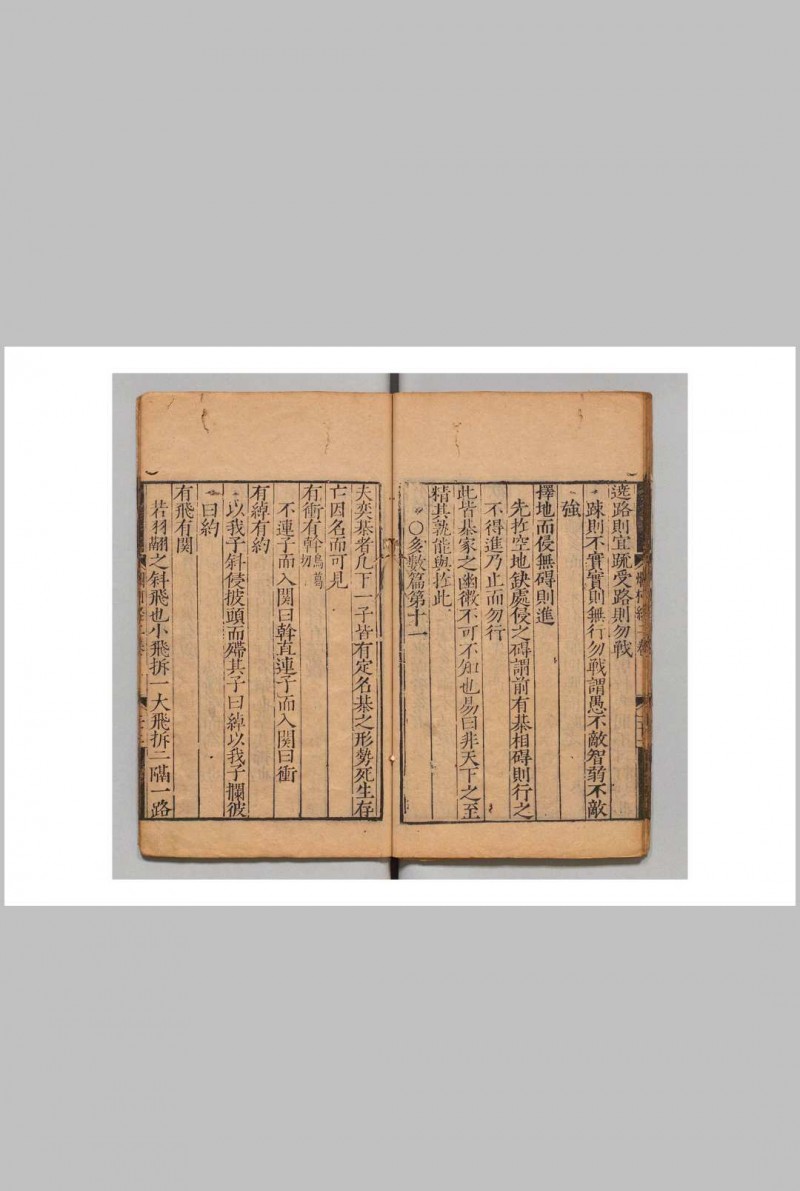 遶路則宜疏受路則勿戰
踈則不實實則無行勿戰謂愚不敵智弱不敵
強
擇地而侵無碍則進
先拃空地缺處侵之碍謂前有棊相碍則行之
不得進乃止而勿行
此皆棊家之幽微不可不知也易曰非天下之至
精其孰能與於此
〇名數篇第十一
夫奕棊者凡下一子皆有定名棊之形勢死生存
亡因名而可見
有衝有幹
不連子而入関曰幹直連子而入関曰衝
有綽有約
以我子斜侵彼頭而殢其子曰綽以我子攔彼
曰約
有飛有関
若羽翮之斜飛也小飛拆一大飛拆二隔一路